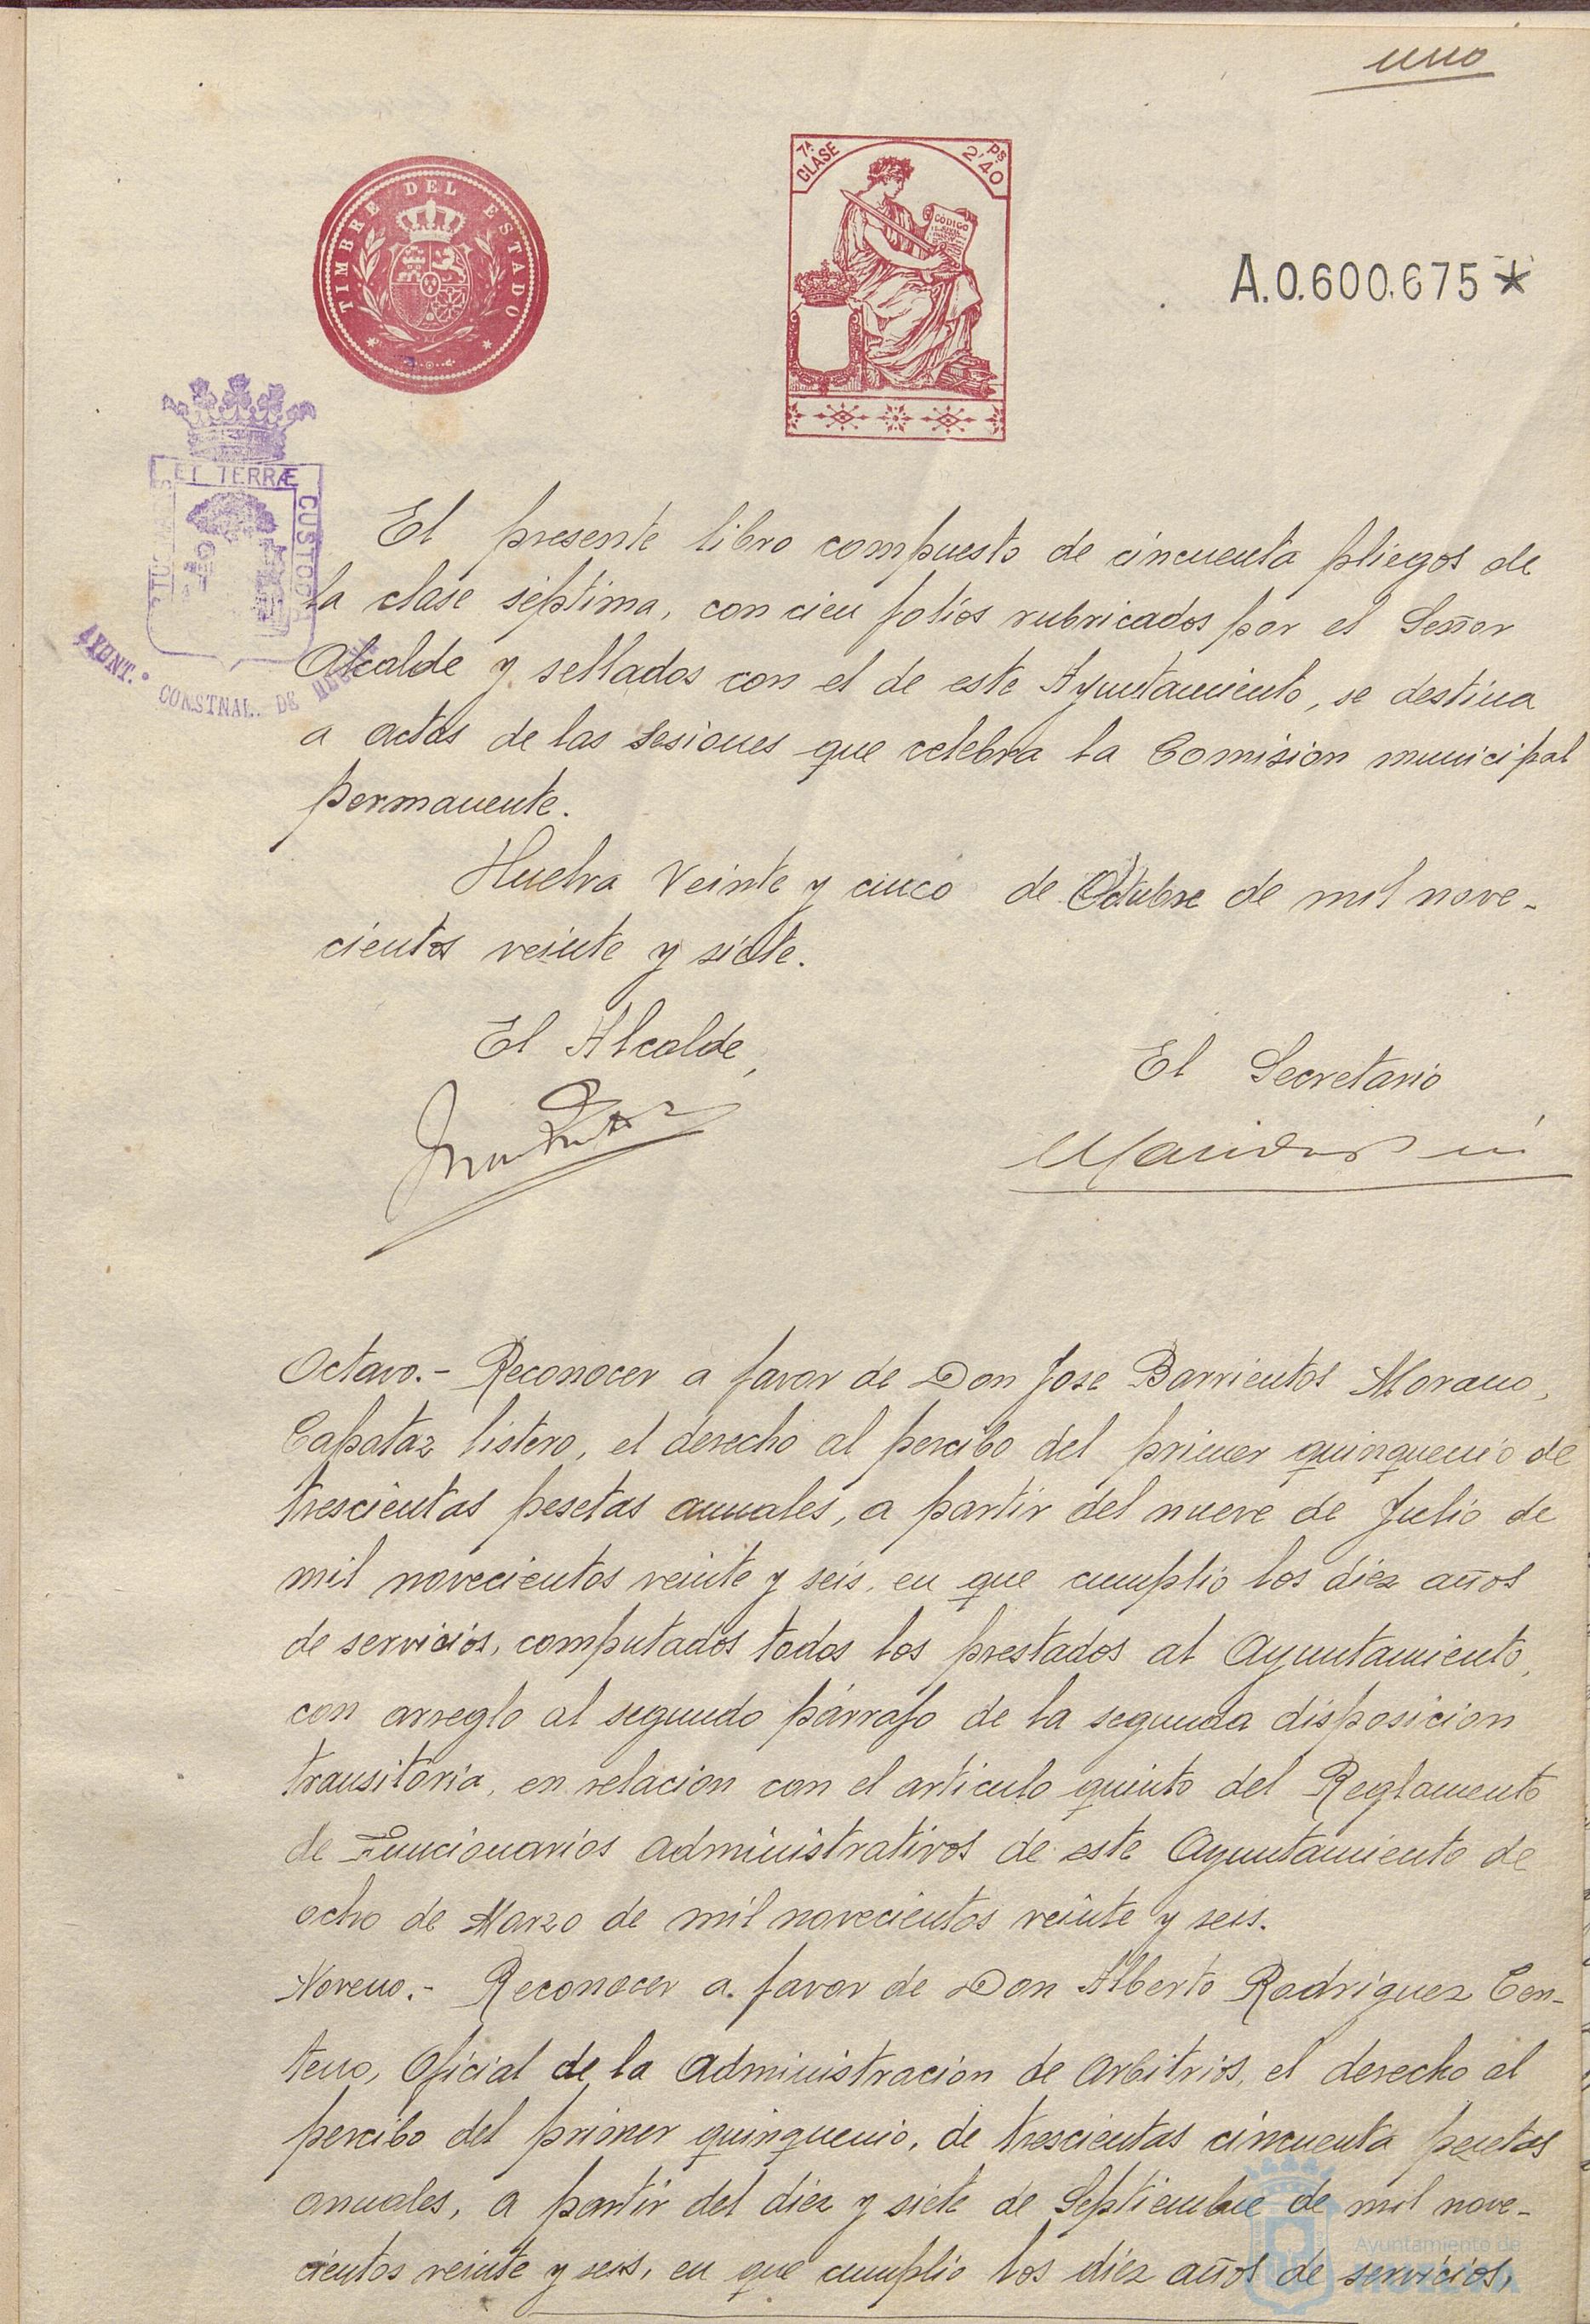 uno
TIMBRE DEL ESTADO
7ª CLASE
2'40 Ps
CODIGO
A.0.600.675*
ET TERRÆ CUSTODIA
AYUNT.º CONSTNAL. DE HUELVA
El presente libro compuesto de cincuenta pliegos de
la clase séptima, con cien folios rubricados por el Señor
Alcalde y sellados con el de este Ayuntamiento, se destina
a actas de las sesiones que celebra la Comision municipal
permanente.
Huelva Veinte y cinco de Octubre de mil nove-
cientos veinte y siete.
El Alcalde,
El Secretario
Octavo.- Reconocer a favor de Don Jose Barrientos Morano,
Capataz listero, el derecho al percibo del primer quinquenio de
trescientas pesetas anuales, a partir del nueve de Julio de
mil novecientos veinte y seis, en que cumplio los diez años
de servicios, computados todos los prestados al Ayuntamiento,
con arreglo al segundo párrafo de la segunda disposicion
transitoria, en relacion con el articulo quinto del Reglamento
de Funcionarios administrativos de este Ayuntamiento de
ocho de Marzo de mil novecientos veinte y seis.
Noveno.- Reconocer a favor de Don Alberto Rodriguez Cen-
teno, Oficial de la Administracion de Arbitrios, el derecho al
percibo del primer quinquenio, de trescientas cincuenta pesetas
anuales, a partir del diez y siete de Septiembre de mil nove-
cientos veinte y seis, en que cumplio los diez años de servicios,
Ayuntamiento de
HUELVA